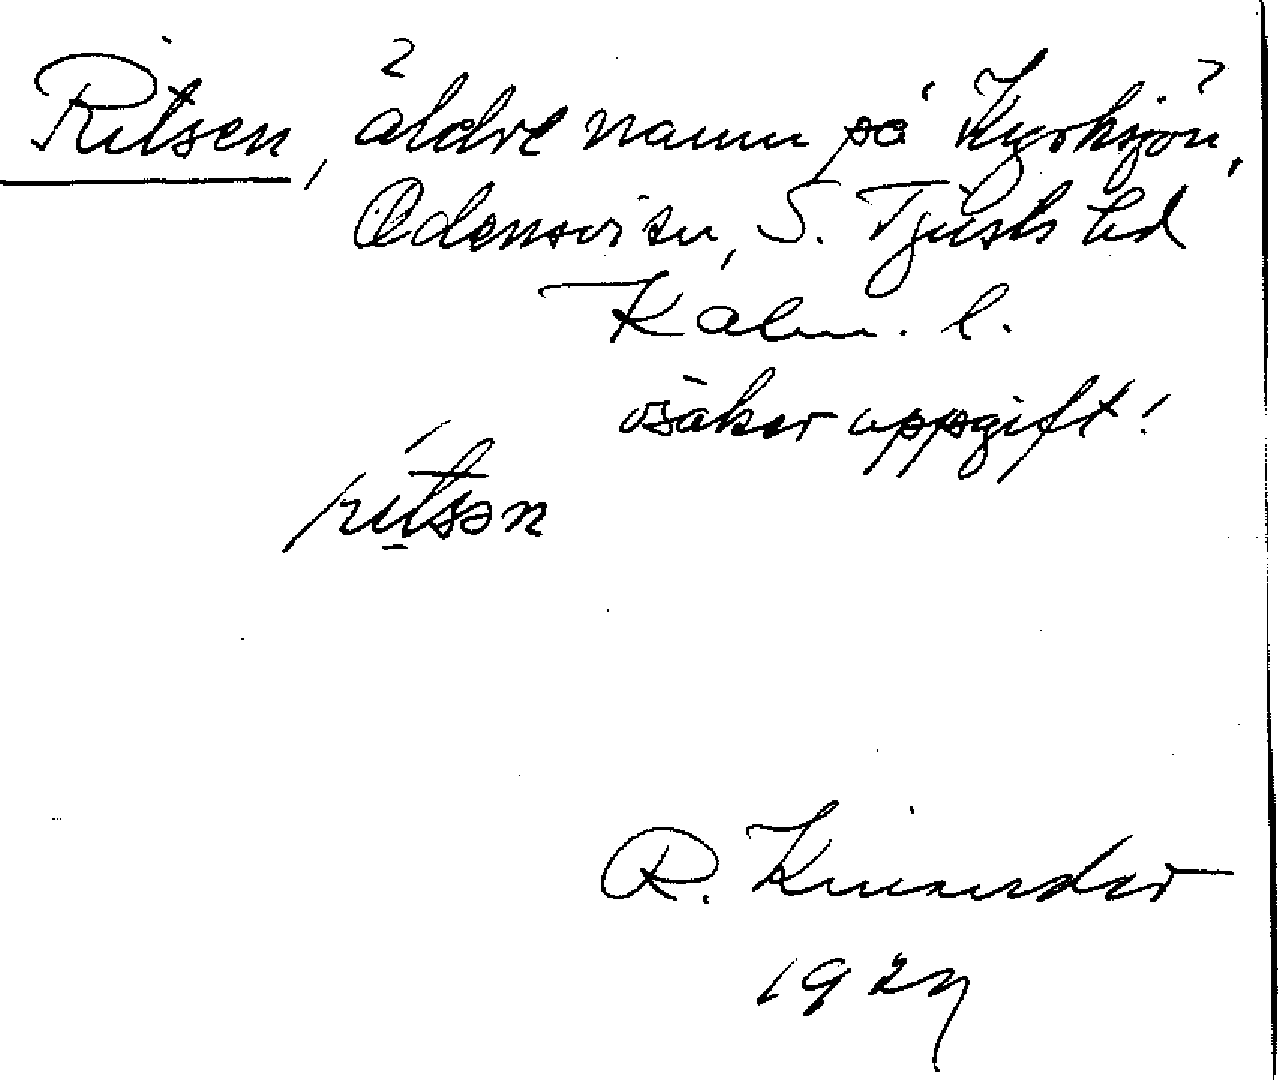 Ritsen, äldre namn på Kyrksjön,
Odensvi sn, S. Tjusts hd
Kalm. l.
osäker uppgift!
ritsən
R. Kinander
1927